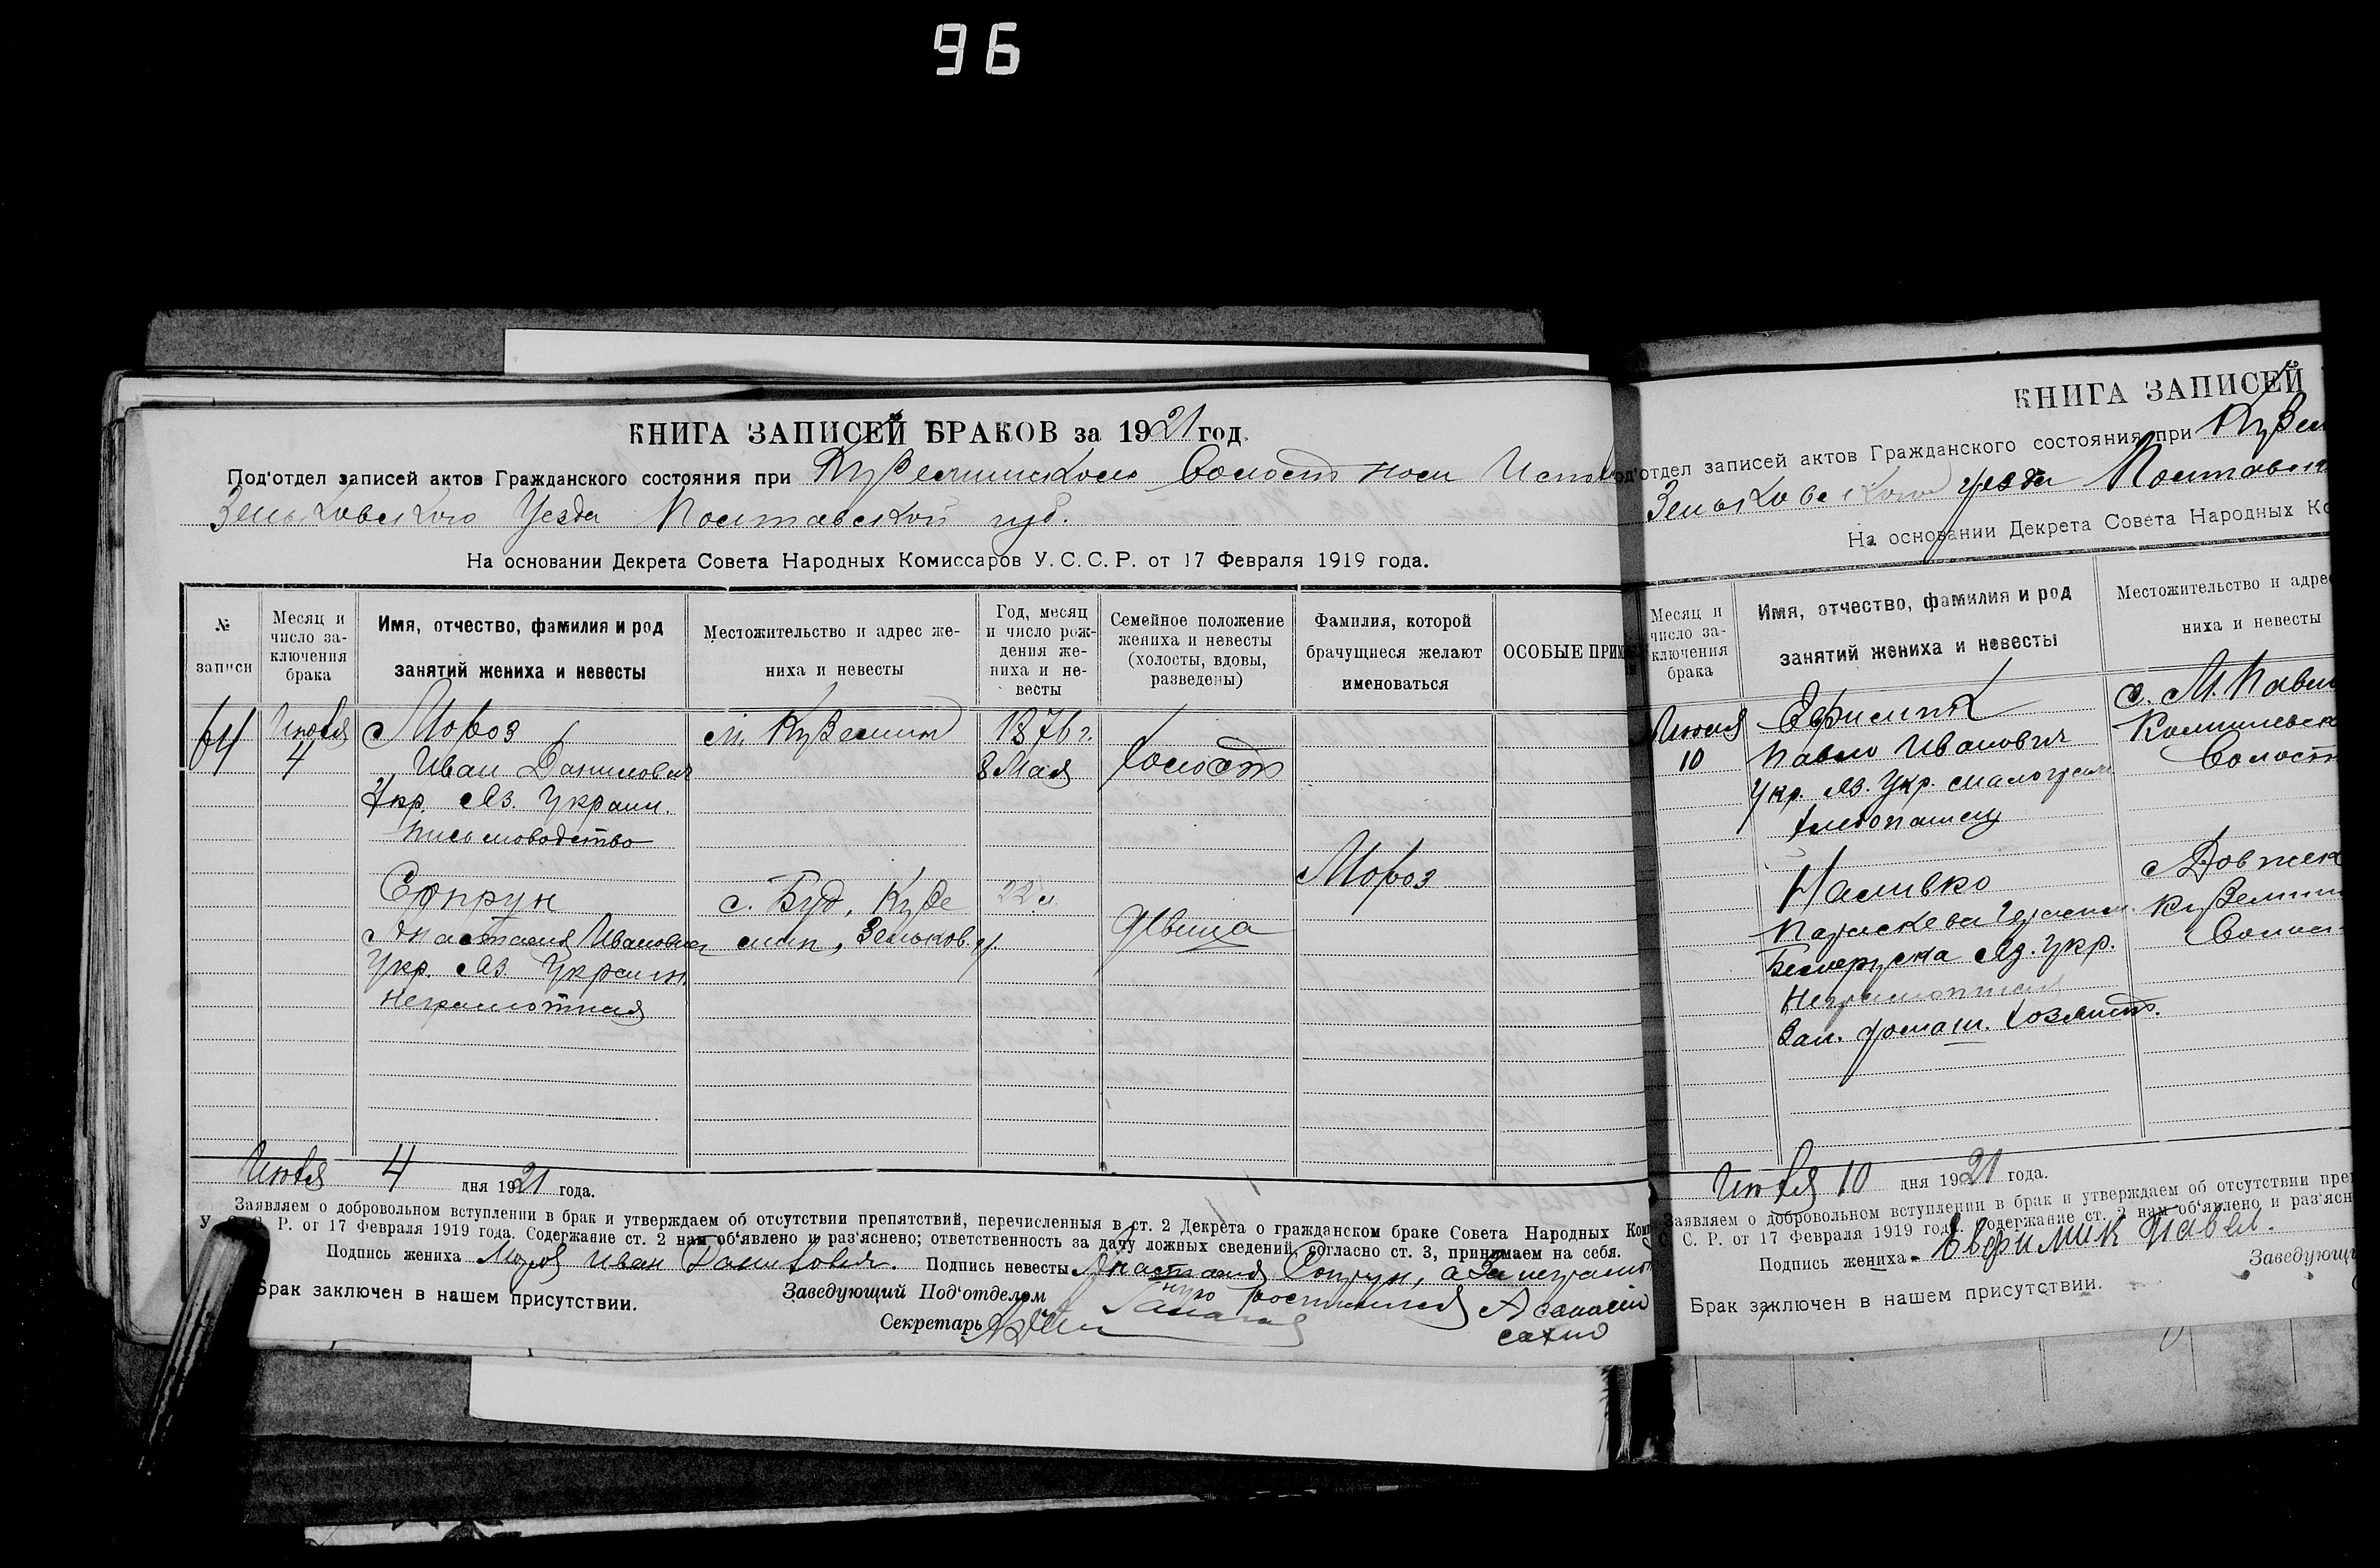 96
КНИГА ЗАПИСЕЙ БРАКОВ за 1921 год.
Под'отдел записей актов Гражданского состояния при Куземинском Волостном Испол
Зеньковского Уезда Полтавской губ.
На основании Декрета Совета Народных Комиссаров У.С.С.Р. от 17 Февраля 1919 года.
№ записи
Месяц и число заключения брака
Имя, отчество, фамилия и род занятий жениха и невесты
Местожительство и адрес жениха и невесты
Год, месяц и число рождения жениха и невесты
Семейное положение жениха и невесты (холосты, вдовы, разведены)
Фамилия, которой брачущиеся желают именоваться
ОСОБЫЕ ПРИМ
64 Июля Мороз м. Куземин 1876 г.
4 Иван Данилович 8 Мая Холост
Укр. Яз. Украин.
письмоводство
Мороз
Сопрун с. Буд, Кузе 22 л.
Анастасия Ивановна мин, Зеньков. у. Двица
Укр. Яз. Украин
неграмотная
Июля 4 дня 1921 года.
Заявляем о добровольном вступлении в брак и утверждаем об отсутствии препятствий, перечисленныя в ст. 2 Декрета о гражданском браке Совета Народных Ком
У. С. С. Р. от 17 Февраля 1919 года. Содержание ст. 2 нам об'явлено и раз'яснено; ответственность за дачу ложных сведений, согласно ст. 3, принимаем на себя.
Подпись жениха Мороз Иван Данилович. Подпись невесты Анастасия Сопрун, а За неграмот
ную росписался
Брак заключен в нашем присутствии. Заведующий Под'отделом
Секретарь
КНИГА ЗАПИСЕЙ
од'отдел записей актов Гражданского состояния при Кузем
Зеньковского уезда Полтавск
На основании Декрета Совета Народных Ко
Месяц и число заключения брака
Имя, отчество, фамилия и род занятий жениха и невесты
Местожительство и адрес
ниха и невесты
Июля Ефимик с. М. Павл
10 Павло Иванович
Укр. Яз. Укр. малограм Волост
хлебопашец
Наливко
Параскева
Яз. Укр.
Неграмотная
Зан. домаш. хозяйств.
Июля 10 дня 1921 года.
Заявляем о добровольном вступлении в брак и утверждаем об отсутствии преп
С. С. Р. от 17 Февраля 1919 года. Содержание ст. 2 нам об'явлено и раз'ясн
Подпись жениха Евфимик Павел.
Заведующи
Брак заключен в нашем присутствии.